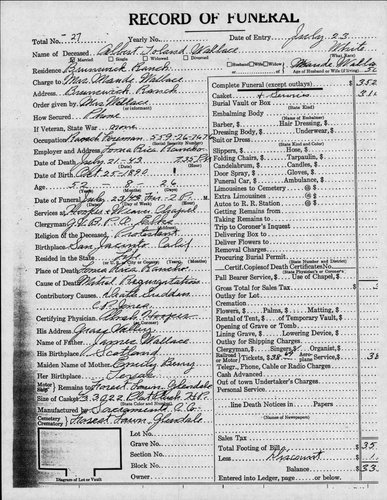 RECORD OF FUNERAL
Total No. 27 Yearly No. Date of Entry July 23
Name of Deceased Albert Toland Wallace White
Married Single Widowed Divorced Husband Widow
Residence Brunswick Ranch Maude Walla
Charge to Mrs. Maude Wallace Age of Husband or Wife (if living)
Address Brunswick Ranch
Order given by Mrs Wallace
How Secured Phone
If Veteran, State War none
Occupation Ranch Foreman 559-26-
Employer and Address Loma Rica Rancho
Date of Death July 21-43
Date of Birth Oct 25-1890
Age 52 8 26
Date of Funeral July 23/43
Services at Hooper & Weaver Chapel
Clergyman B.P.O. Elks
Religion of the Deceased Protestant
Birthplace San Jacinto Calif
Resided in the State Life
Place of Death Loma Rica Rancho
Cause of Death Mitral Regurgitation
Contributory Causes Death Sudden
Certifying Physician
His Address Grass Valley
Name of Father James Wallace
His Birthplace Scotland
Maiden Name of Mother Emily Berry
Her Birthplace Texas
Remains to Forest Lawn Glendale
Size of Casket
Manufactured by Sacramento C. Co.
Cemetery Crematory Forest Lawn, Glendale
Lot No.
Grave No.
Section No.
Block No.
Owner
Diagram of Lot or Vault
Complete Funeral (except outlays) $ 352
Casket & Service
Burial Vault or Box
(State Kind)
Embalming Body
(Name of Embalmer)
Barber, $ Hair Dressing, $
Dressing Body, $ Underwear, $
Suit or Dress
(State Kind and Color)
Slippers, $ Hose, $
Folding Chairs, $ Tarpaulin, $
Candelabrum, $ Candles, $
Door Spray, $ Gloves, $
Funeral Car, $ Ambulance, $
Limousines to Cemetery @ $
Extra Limousines @ $
Autos to R. R. Station @ $
Getting Remains from
Taking Remains to
Trip to Coroner's Inquest
Delivering Box to
Deliver Flowers to
Removal Charges
Procuring Burial Permit
Certf. Copies of Death Certificate No.
Pall Bearer Service, $ Use of Chapel, $
Gross Total for Sales Tax $
Outlay for Lot
Cremation
Flowers, $ Palms, $ Matting, $
Rental of Tent, $ of Temporary Vault, $
Opening of Grave or Tomb
Lining Grave, $ Lowering Device, $
Outlay for Shipping Charges
Clergyman, $ Singers, $ Organist, $
Railroad or Motor Tickets, $ Aeroplane Service, $
Telegr., Phone, Cable or Radio Charges
Cash Advanced
Out of town Undertaker's Charges
Personal Service
line Death Notices in Papers
(Names of Newspapers)
Sales Tax
Total Footing of Bill $ 35
Less Discount
Balance $ 33
Entered into Ledger, page or below.